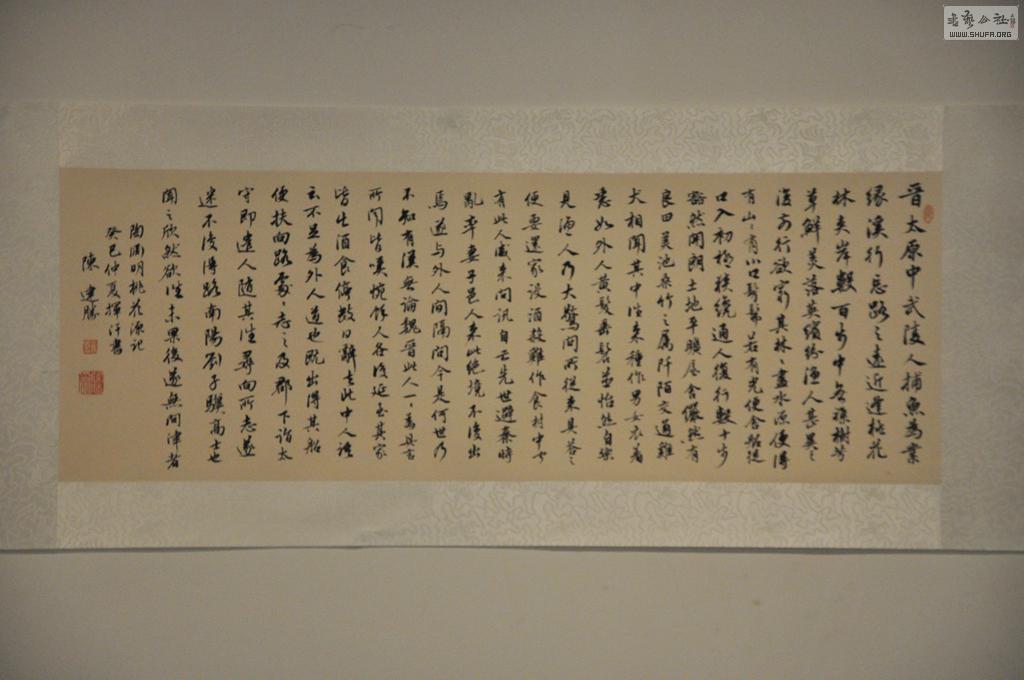 晋太原中武陵人捕魚為業
缘溪行忘路之遠近逢桃花
林夹岸數百步中無雜樹芳
草鮮美落英缤纷漁人甚異之
復前行欲窮其林林盡水源便得
有山山有小口髣髴若有光便舍船從
口入初極狭纔通人復行數十步
豁然開朗土地平曠屋舍儼然有
良田美池桑竹之属阡陌交通雞
犬相聞其中往来種作男女衣着
悉如外人黄髮垂髫並怡然自樂
見漁人乃大驚問所從来具答之
便要還家設酒殺雞作食村中
有此人咸来問讯自云先世避秦時
亂率妻子邑人来此绝境不復出
焉遂与外人間隔問今是何世乃
不知有漢無論魏晋此人一一為具言
所聞皆嘆惋馀人各復延至其家
皆出酒食停數日辭去此中人語
云不足為外人道也既出得其船
便扶向路處處志之及郡下詣太
守即遣人随其往尋向所志遂
迷不復得路南陽劉子驥高士也
聞之欣然欲往未果後遂無問津者
陶渊明桃花源记
癸巳仲夏揮汗書
陳建勝
WWW.SHUFA.ORG